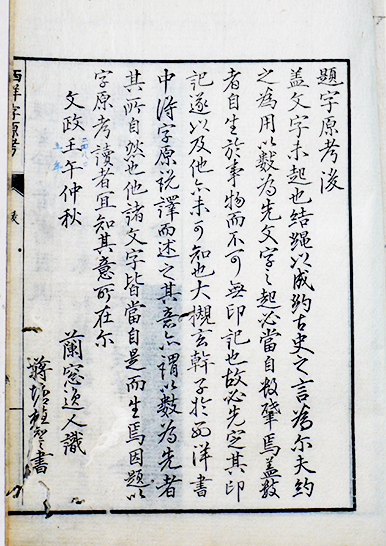 題字原考後
盖文字未起也結繩以成約古史之言為尔夫約
之為用以数為先文字之起必當自数肇焉盖数
者自生於事物而不可無印記也故必先定其印
記遂以及他亦未可知也大槻玄幹子於西洋書
中得字原説譯而述之其意亦謂以数為先者
其所自然也他諸文字皆當自是而生焉因題以
字原考讀者宜知其意所在尔
文政壬午仲秋
蘭窓逸人識
書
西洋字原考